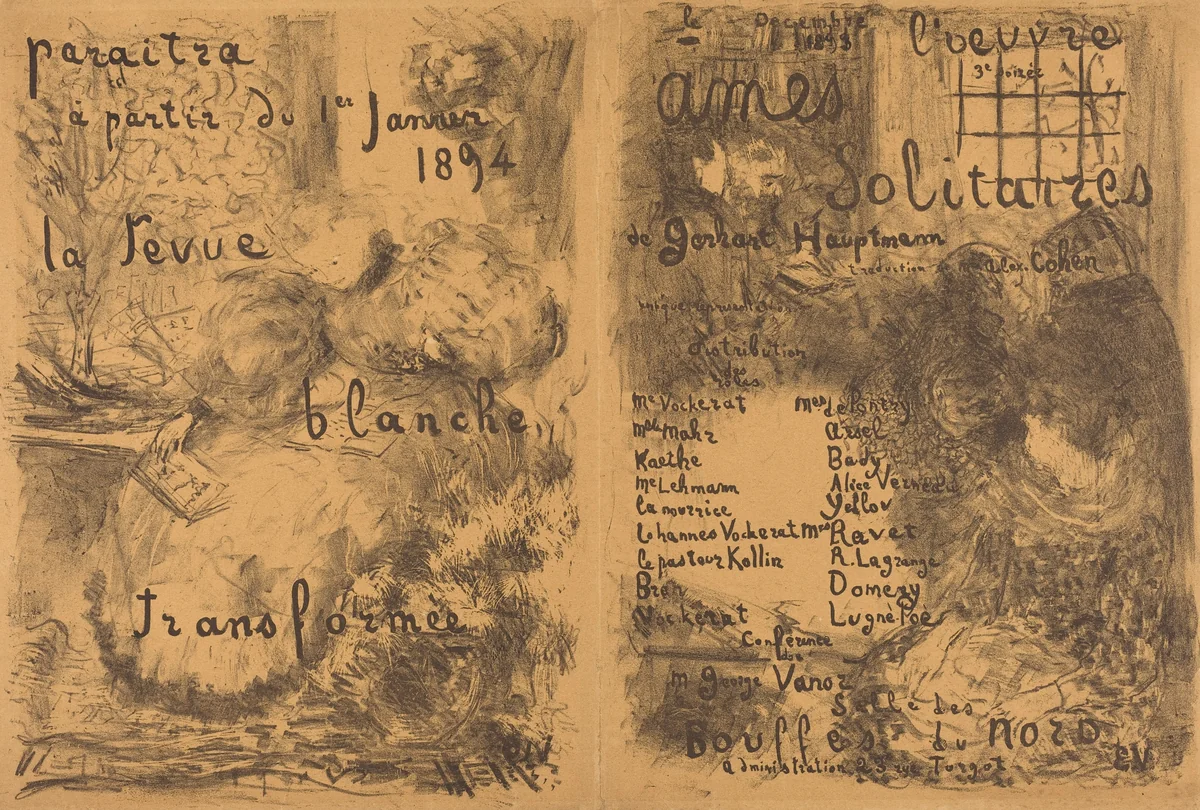 paraitra
à partir du 1er Janvier
1894
la revue
blanche
transformée
EV
le Decembre
1893
l'oeuvre
3e soirée
ames
Solitaires
de Gerhart Hauptmann
traduction de Mr Alex. Cohen
unique représentation
distribution
des
rôles
Me Vockerat Mes de Pontry
Mlle Mahr Arsel
Kaethe Bady
Me Lehmann Alice Verneau
la nourrice Yellov
Iohannes Vockerat Mrs Ravet
le pasteur Kollin R. Lagrange
Bran Domeny
Vockerat Lugné-Poe
Conférence
de
M george Vanor
Salle des
Bouffes du Nord
Administration 23 rue Turgot
EV